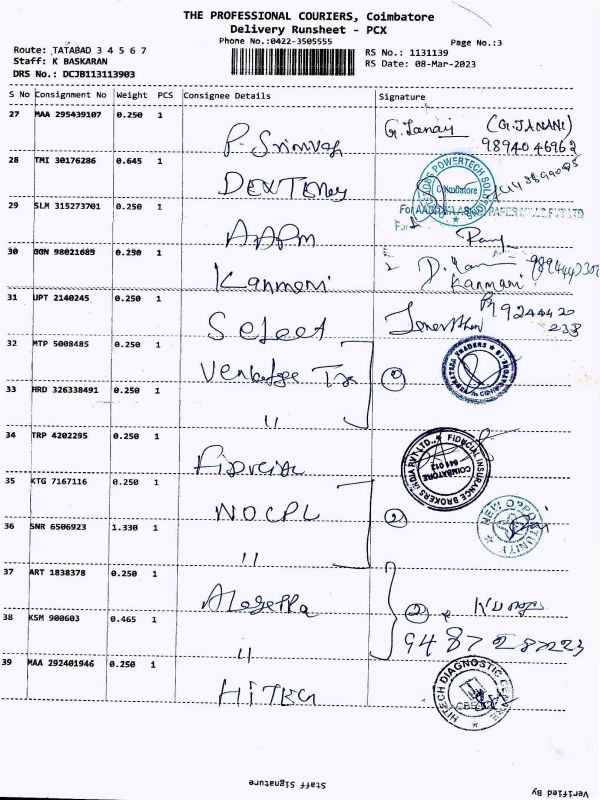 THE PROFESSIONAL COURIERS, Coimbatore
Delivery Runsheet - PCX
Phone No.:0422-3505555
Page No.:3
Route: TATABAD 3 4 5 6 7
Staff: K BASKARAN
DRS No.: DCJB113113903
RS No.: 1131139
RS Date: 08-Mar-2023
S No Consignment No Weight PCS Consignee Details Signature
27 MAA 295439107 0.250 1 (G.JANANI)
98940 46962
28 TMI 30176286 0.645 1
POWERTECH Coimbatore
29 SLM 315273701 0.250 1 AAPM
30 GGN 98021685 0.250 1 Kanmani D. Kanmani
31 UPT 2140245 0.250 1 Select 9244420
238
32 MTP 5008485 0.250 1 2
TRADERS
33 HRD 326338491 0.250 1 "
34 TRP 4202295 0.250 1
FIDUCIAL INSURANCE BROKERS INDIA PVT LTD., COIMBATORE 641 012
35 KTG 7167116 0.250 1 NOCPL 2
NEW OPPORTUNITY
36 SNR 6506923 1.330 1 "
37 ART 1838378 0.250 1 2
38 KSM 900603 0.465 1 " 9487287223
39 MAA 292401946 0.250 1 HiTECH
HITECH DIAGNOSTIC CENTRE CBE
Staff Signature
Verified By